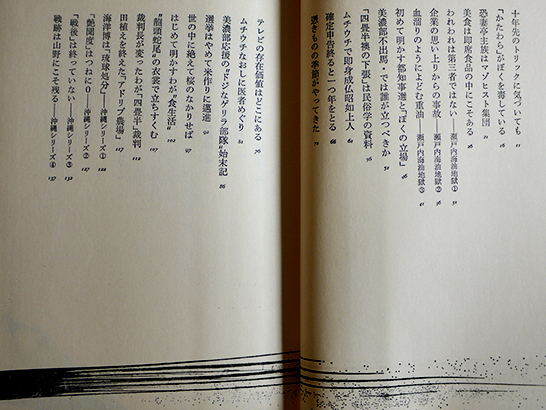 十年先のトリックに気づいても 11
「かたわら」がぼくを毒している 16
恐妻亭主族はマゾヒスト集団 21
美食は即席食品の中にこそある 26
われわれは第三者ではない——瀬戸内海油地獄① 31
企業の思い上りからの事故——瀬戸内海油地獄② 36
血溜りのようによどむ重油——瀬戸内海油地獄③ 41
初めて明かす都知事選と"ぼくの立場" 46
美濃部不出馬・では誰が立つべきか 51
「四畳半襖の下張」は民俗学の資料 56
ムチウチで即身成仏昭如上人 61
確定申告終ると一つ年をとる 66
憑きものの季節がやってきた 71
テレビの存在価値はどこにある 76
ムチウチなおしに医者めぐり 81
美濃部応援の"ドジなゲリラ部隊"始末記 86
選挙はやめて米作りに邁進 92
世の中に絶えて桜のなかりせば 97
はじめて明かすわが"食生活" 102
"龍頭蛇尾"の衣裳で立ちすくむ 107
裁判長が変ったわが「四畳半」裁判 112
田植えを終えた「アドリブ農場」 117
海洋博は「琉球処分」——沖縄シリーズ① 122
「艶聞度」はつねに0——沖縄シリーズ② 127
「戦後」は終っていない——沖縄シリーズ③ 132
戦跡は山野にこそ残る——沖縄シリーズ④ 137